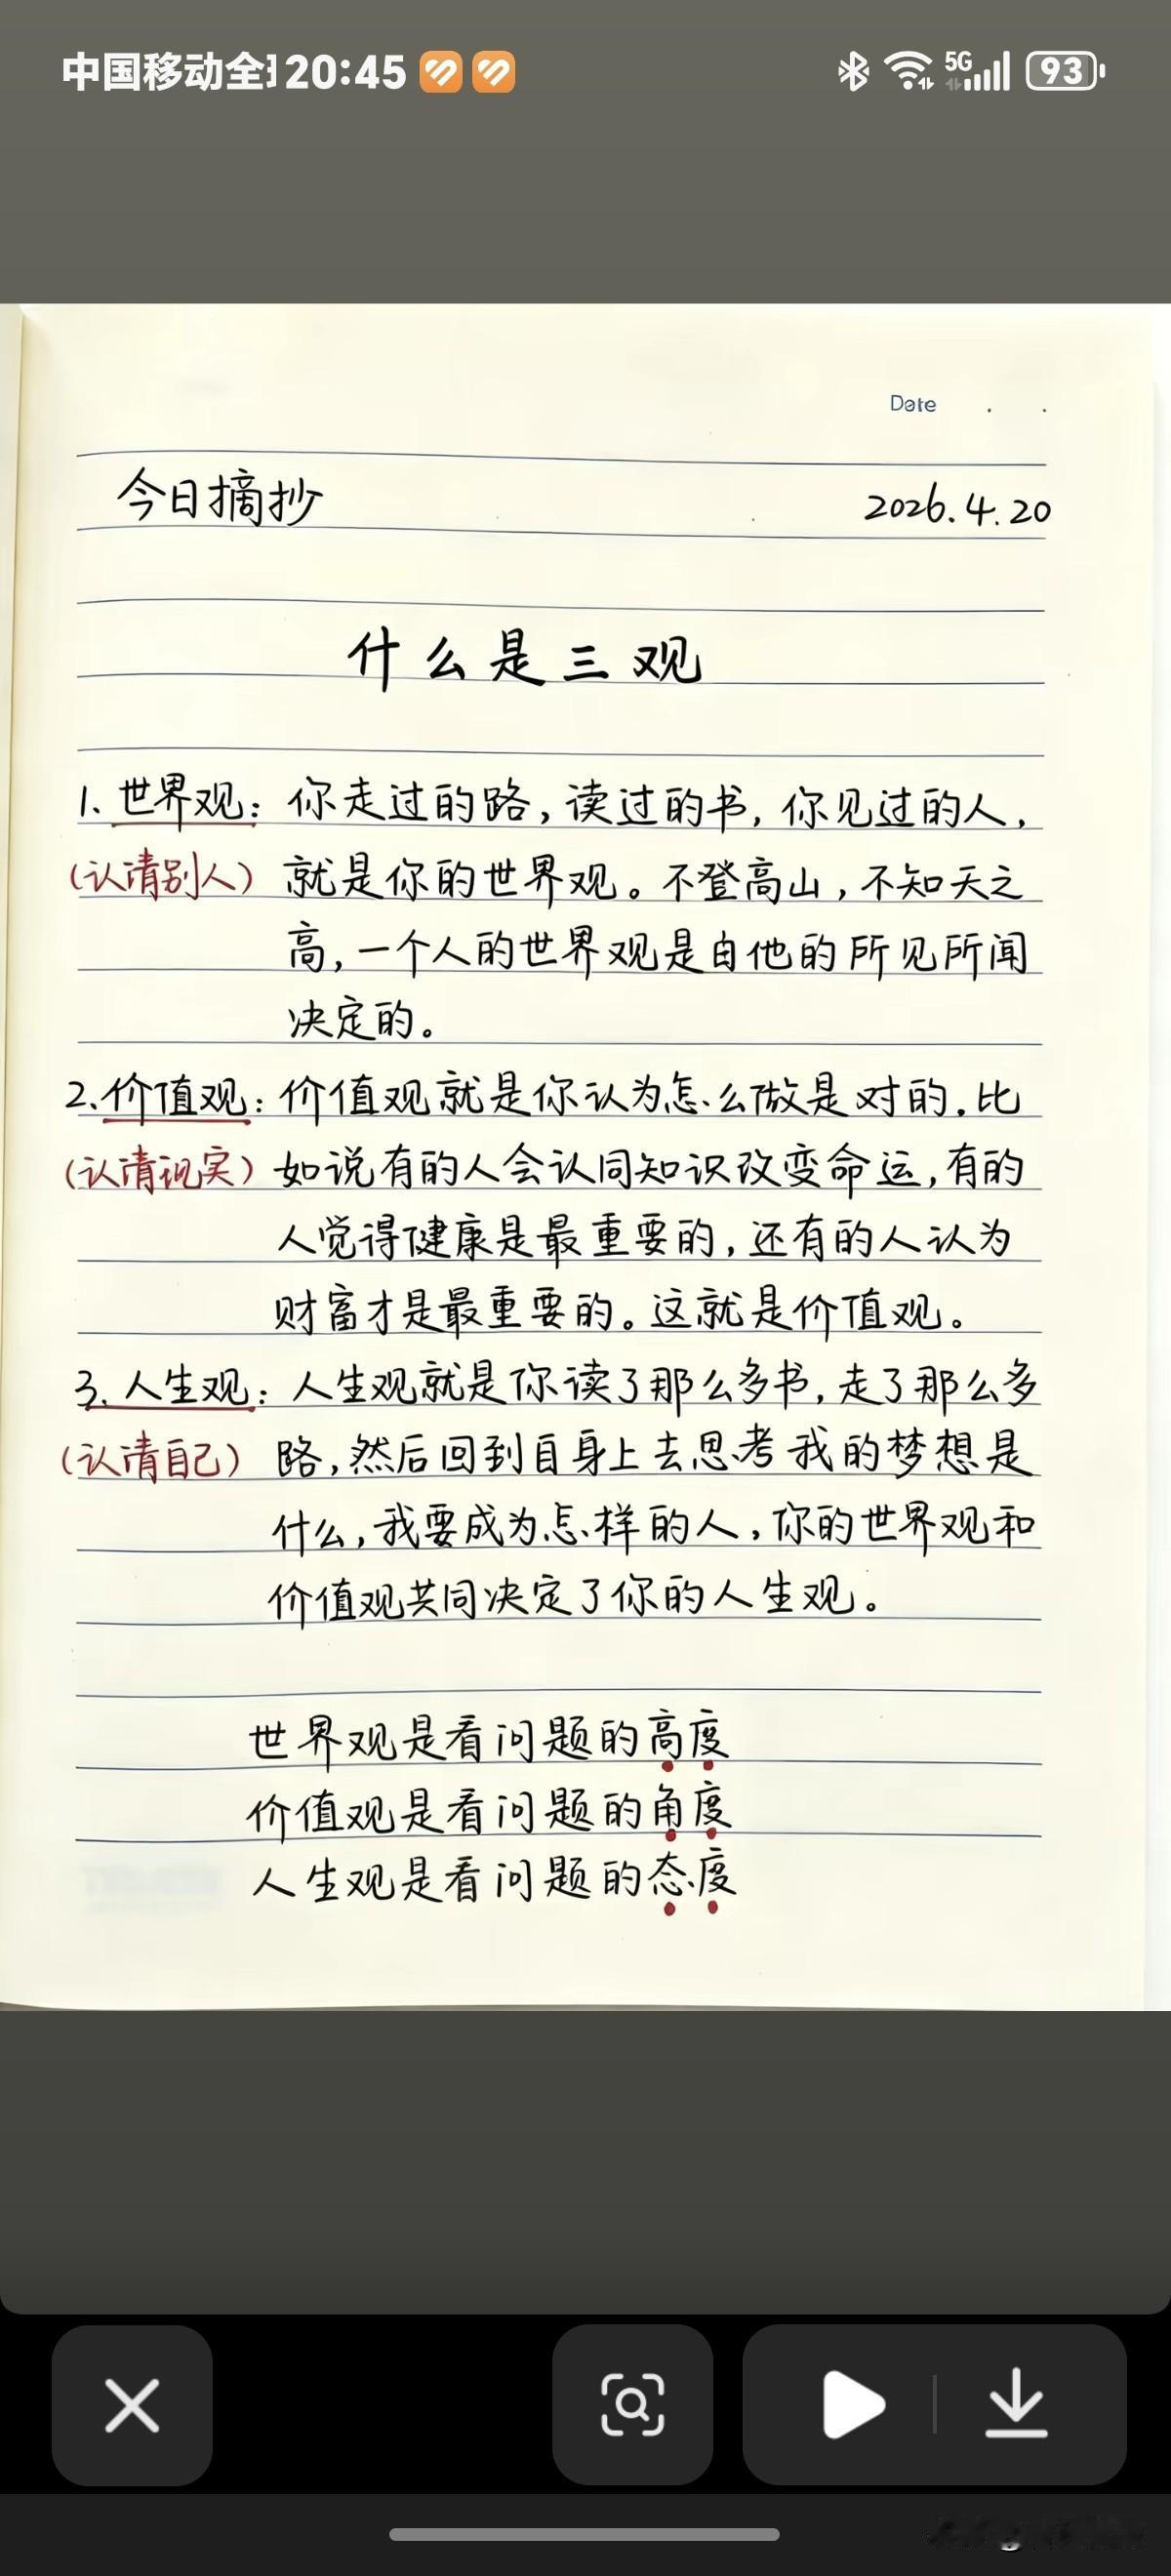 中国移动全 20:45
5G
93
Date . .
今日摘抄 2026.4.20
什么是三观
1. 世界观：你走过的路，读过的书，你见过的人，
（认清别人）就是你的世界观。不登高山，不知天之
高，一个人的世界观是由他的所见所闻
决定的。
2.价值观：价值观就是你认为怎么做是对的.比
（认清现实）如说有的人会认同知识改变命运，有的
人觉得健康是最重要的，还有的人认为
财富才是最重要的。这就是价值观。
3. 人生观：人生观就是你读了那么多书，走了那么多
（认清自己）路，然后回到自身上去思考我的梦想是
什么，我要成为怎样的人，你的世界观和
价值观共同决定了你的人生观。
世界观是看问题的高度
价值观是看问题的角度
人生观是看问题的态度